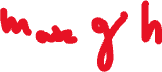 make g h